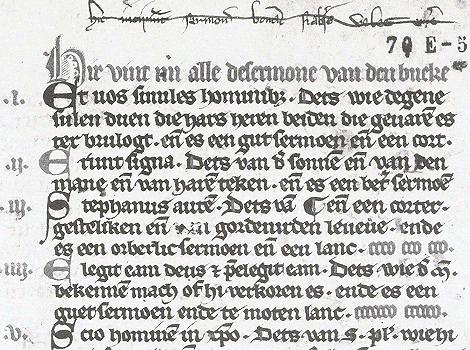 70 E-5
Hir vint m̄ alle de sermone van den bucke
.I. Et uos similes hominibꝫ. Dets wie degene
sulen duen die hars heren beiden die geuarē es
ter brulogt. en̄ es een gut sermoen en̄ een cort.
.ij. Erunt signa. Dets van d' sonnē en̄ van den
mane en̄ van harē teken. en̄ es een bet' sermoē
.iij. Stephanus autē. Dets vā C en̄ een corter.
gesteliken en̄ gordenirden leuēne. ende
es een orberlic sermoen en̄ een lanc.
.iiij. Elegit eam deus ⁊ p̄elegit eam. Dets. wie d' m̄.
bekennen mach of hi verkoren es. ende es een
guet sermoen ende te moten lanc.
.v. Scio hominē in xp̄o. Dets van S. pl'. wie hi